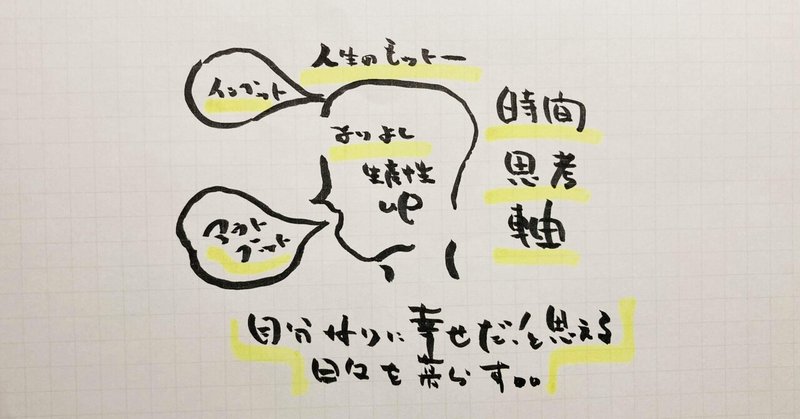 人生のモットー
インプット
時間
生産性
up
思考
アウト
プット
軸
自分なりに幸せだ！と思える
日々を暮らす。。